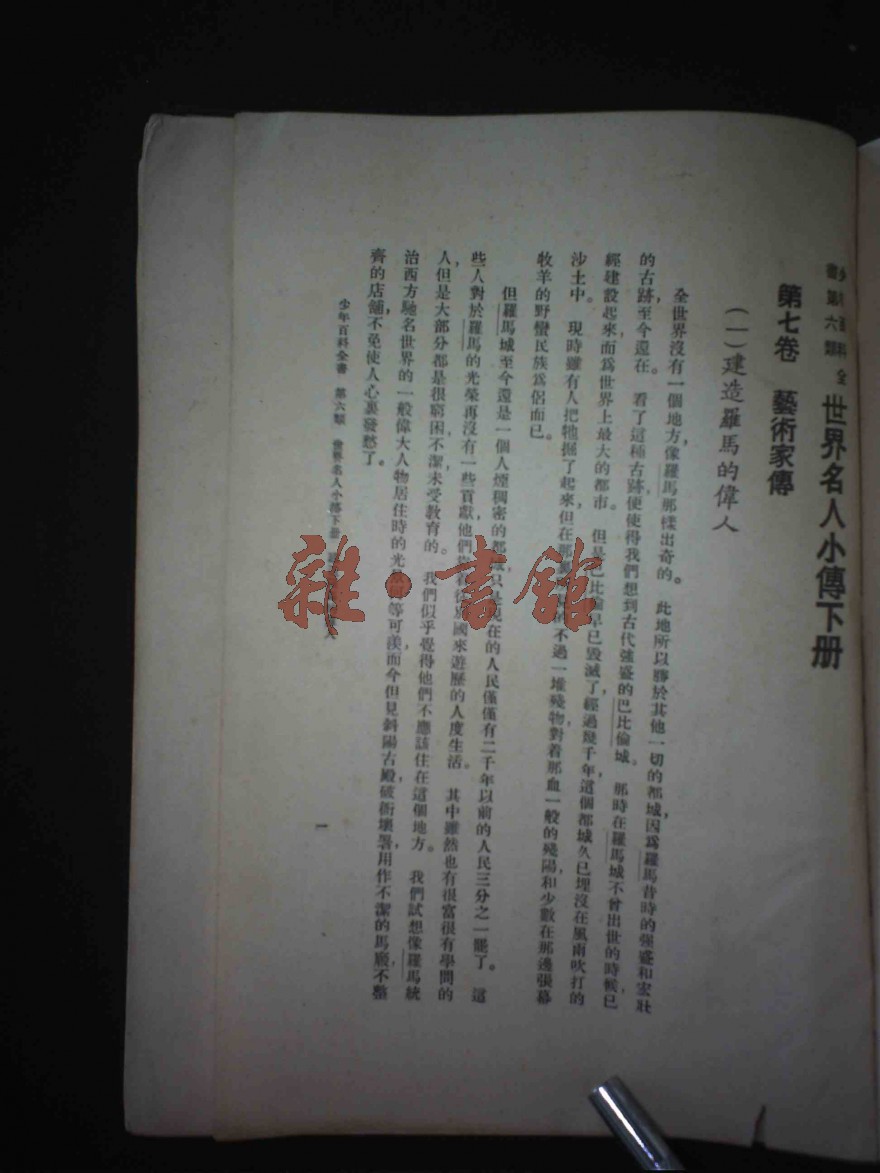 少年百科全
書第六類
世界名人小傳下册
第七卷　藝術家傳
(一)建造羅馬的偉人
全世界沒有一個地方,像羅馬那樣出奇的。此地所以勝於其他一切的都城,因爲羅馬昔時的強盛和宏壯
的古跡,至今還在。看了這種古跡,便使得我們想到古代強盛的巴比倫城。那時在羅馬城不曾出世的時候,已
經建設起來,而爲世界上最大的都市。但是巴比倫早已毀滅了,經過幾千年,這個都城久已埋沒在風雨吹打的
沙土中。現時雖有人把牠掘了起來,但在那不過一堆殘物,對着那血一般的殘陽,和少數在那邊張幕
牧羊的野蠻民族爲侶而已。
但羅馬城至今還是一個人煙稠密的都,只是現在的人民僅僅有二千年以前的人民三分之一罷了。這
些人對於羅馬的光榮,再沒有一些貢獻,他們別國來遊歷的人度生活。其中雖然也有很富很有學問的
人,但是大部分都是很窮困,不潔,未受教育的。我們似乎覺得他們不應該住在這個地方。我們試想像羅馬統
治西方馳名世界的一般偉大人物居住時的光等可羨,而今但見斜陽古殿,破衙壞署,用作不潔的馬廄,不整
齊的店舖,不免使人心裏發愁了。
少年百科全書　第六類　世界名人小傳下册　人
一
雜·書館